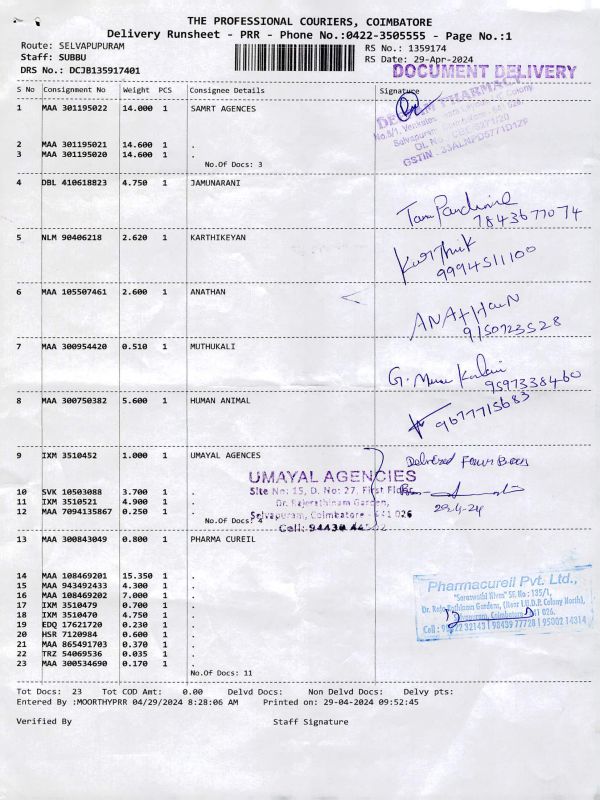 THE PROFESSIONAL COURIERS, COIMBATORE
Delivery Runsheet - PRR - Phone No.:0422-3505555 - Page No.:1
Route: SELVAPUPURAM
RS No.: 1359174
Staff: SUBBU
RS Date: 29-Apr-2024
DRS No.: DCJB135917401
DOCUMENT DELIVERY
S No Consignment No Weight PCS Consignee Details Signature
1 MAA 301195022 14.000 1 SAMRT AGENCES
2 MAA 301195021 14.600 1 .
3 MAA 301195020 14.600 1 .
No.Of Docs: 3
4 DBL 410618823 4.750 1 JAMUNARANI
7843677074
5 NLM 90406218 2.620 1 KARTHIKEYAN
Karthik
9994511100
6 MAA 105507461 2.600 1 ANATHAN
9150723528
7 MAA 300954420 0.510 1 MUTHUKALI
9597338460
8 MAA 300750382 5.600 1 HUMAN ANIMAL
9677715683
9 IXM 3510452 1.000 1 UMAYAL AGENCES
Delivered Four Boxes
UMAYAL AGENCIES
Site No: 15, D. No: 27, First Floor,
Dr. Rajarathinam Garden,
Selvapuram, Coimbatore - 641 026
Cell: 94430
29-4-24
10 SVK 10503088 3.700 1 .
11 IXM 3510521 4.900 1 .
12 MAA 7094135867 0.250 1 .
No.Of Docs: 4
13 MAA 300843049 0.800 1 PHARMA CUREIL
14 MAA 108469201 15.350 1 .
15 MAA 943492433 4.300 1 .
16 MAA 108469202 7.000 1 .
17 IXM 3510479 0.700 1 .
18 IXM 3510470 4.750 1 .
19 EDQ 17621720 0.230 1 .
20 HSR 7120984 0.600 1 .
21 MAA 865491703 0.370 1 .
22 TRZ 54069536 0.035 1 .
23 MAA 300534690 0.170 1 .
No.Of Docs: 11
Pharmacureil Pvt. Ltd.,
"Saraswathi Nivas" SF. No : 135/1,
Dr. Raja Rathinam Gardens, (Near T.H.D.P. Colony North),
Selvapuram, Coimbatore 641 026.
32143 | 98439 77728 | 95002 14314
Tot Docs: 23 Tot COD Amt: 0.00 Delvd Docs: Non Delvd Docs: Delvy pts:
Entered By :MOORTHYPRR 04/29/2024 8:28:06 AM Printed on: 29-04-2024 09:52:45
Verified By Staff Signature